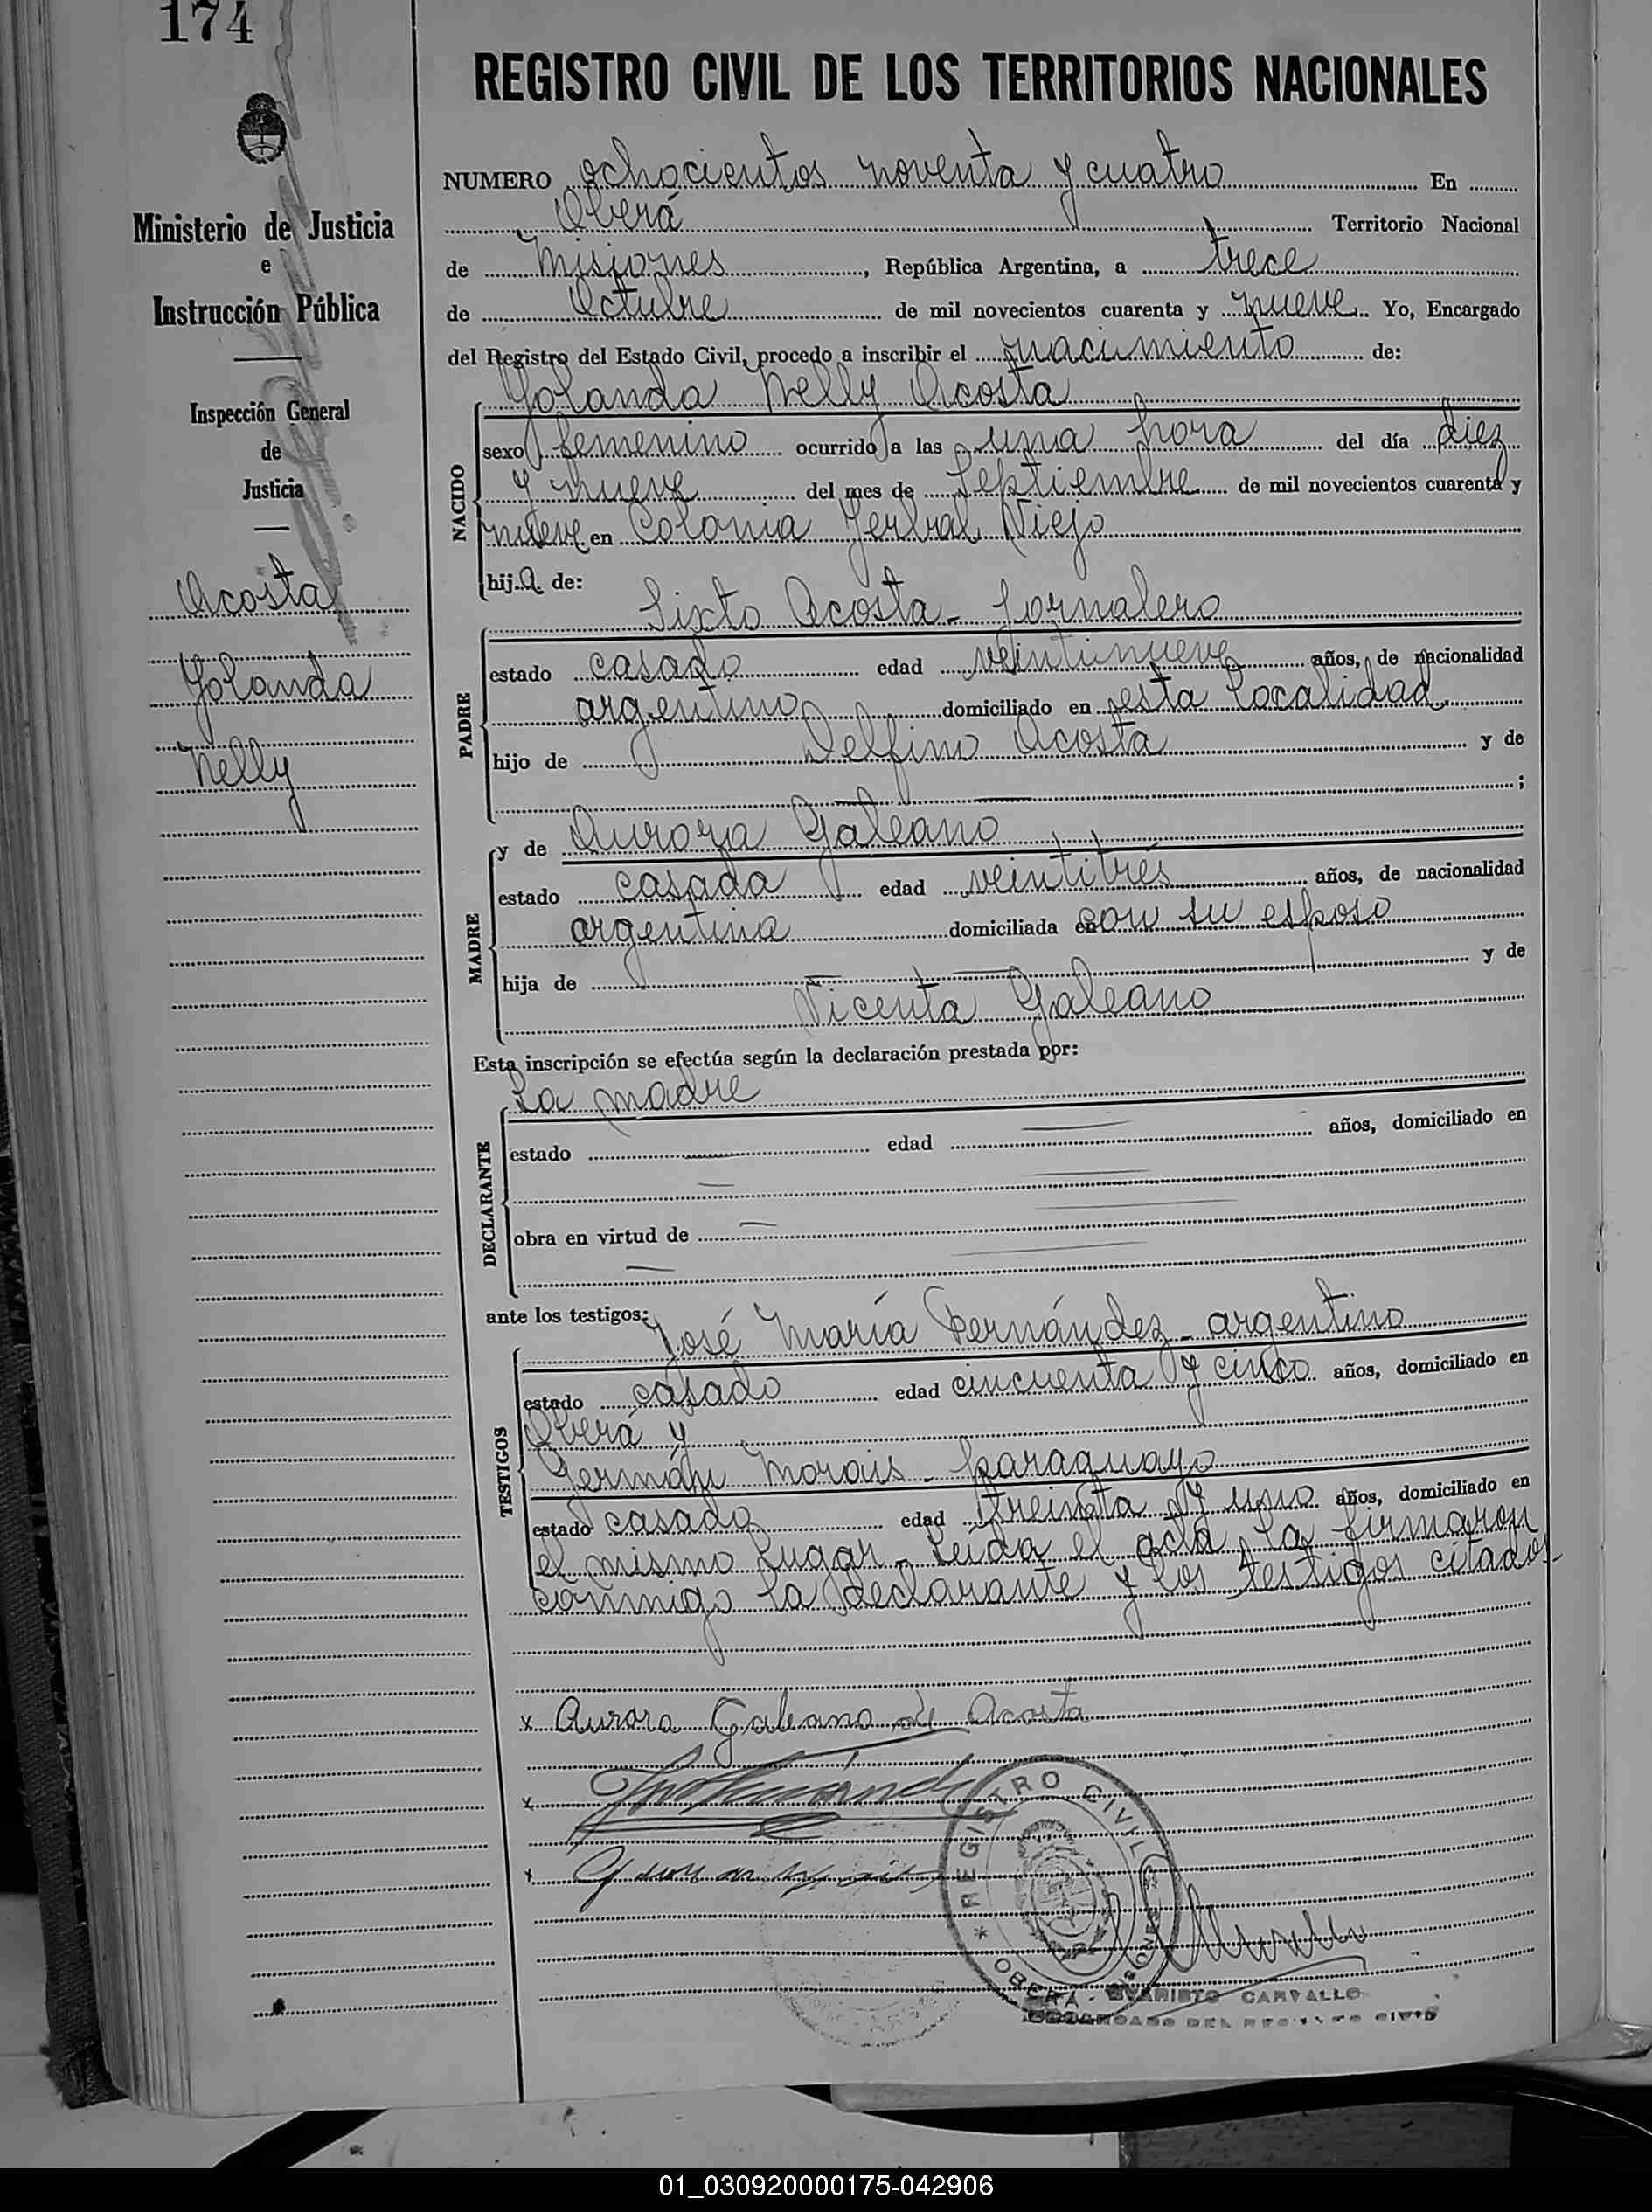 174
REGISTRO CIVIL DE LOS TERRITORIOS NACIONALES
Ministerio de Justicia
e
Instrucción Pública
Inspección General
de
Justicia
Acosta
Yolanda
Nelly
NUMERO ochocientos noventa y cuatro En
Oberá Territorio Nacional
de Misiones, República Argentina, a trece
de Octubre de mil novecientos cuarenta y nueve Yo, Encargado
del Registro del Estado Civil, procedo a inscribir el nacimiento de:
NACIDO
Yolanda Nelly Acosta
sexo femenino ocurrido a las una hora del día diez
y nueve del mes de Septiembre de mil novecientos cuarenta y
nueve en Colonia Yerbal Viejo
hija de:
PADRE
Sixto Acosta - Jornalero
estado casado edad veintinueve años, de nacionalidad
argentino domiciliado en esta localidad
hijo de Delfino Acosta y de
;
MADRE
y de Aurora Galeano
estado casada edad veintitrés años, de nacionalidad
argentina domiciliada con su esposo
hija de y de
Vicenta Galeano
Esta inscripción se efectúa según la declaración prestada por:
DECLARANTE
La madre
estado edad años, domiciliado en
obra en virtud de
ante los testigos:
TESTIGOS
José María Fernández - argentino
estado casado edad cincuenta y cinco años, domiciliado en
Oberá y
Germán Morais - paraguayo
estado casado edad treinta y uno años, domiciliado en
el mismo lugar - Leída el acta la firmaron
conmigo la declarante y los testigos citados -
x Aurora Galeano de Acosta
x
x
* REGISTRO CIVIL * OBERÁ - MISIONES
EVARISTO CARVALLO
ENCARGADO DEL REGISTRO CIVIL
01_030920000175-042906